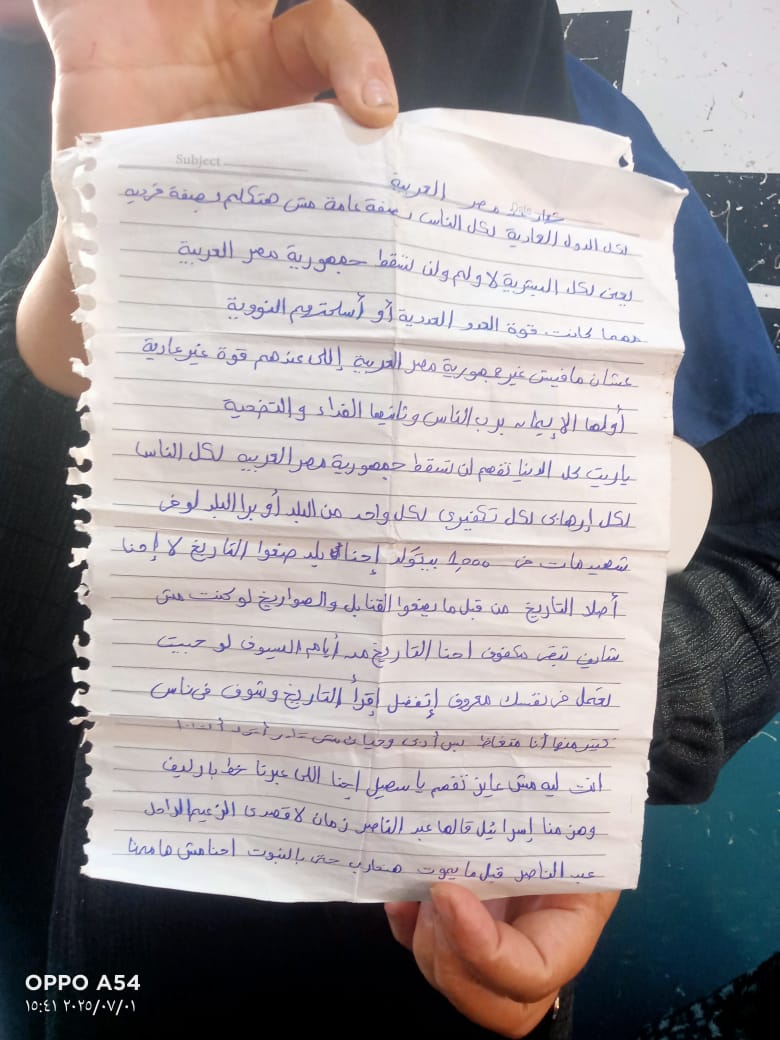 Subject
Date
شعار مصر العربية
لكل الدول العادية لكل الناس بصفة عامة مش هتكلم بصفة فرديه
يعنى لكل البشرية لا ولم ولن تسقط جمهورية مصر العربية
مهما كانت قوة العدو العددية أو أسلحتهم النووية
عشان مافيش غير جمهورية مصر العربية إللى عندهم قوة غير عادية
أولها الإيمان برب الناس وثانيها الفداء والتضحية
ياريت كل الدنيا تفهم لن تسقط جمهورية مصر العربيه لكل الناس
لكل إرهابى لكل تكفيرى لكل واحد من البلد أو برا البلد لو فى
شهيد مات فى 1,000 بيتولد إحنا بلد صنعوا التاريخ لا إحنا
أصلا التاريخ من قبل ما يصنعوا القنابل والصواريخ لو كنت مش
شايف تبقى مكفوف احنا التاريخ من أيام السيوف لو حبيت
تعمل فى نفسك معروف إتفضل إقرأ التاريخ وشوف فى ناس
كتير منها أنا متغاظ بس أدى وحياك مش قادر
انت ليه مش عايز تفهم يا سهيل إحنا اللى عبرنا خط بارليف
وهزمنا إسرائيل قالها عبد الناصر زمان لا قصدى الزعيم الراحل
عبد الناصر قبل ما يموت هنحارب حتى بالنبوت احنا مش هاممنا
OPPO A54
١٥:٤١ ٢٠٢٥/٠٧/٠١